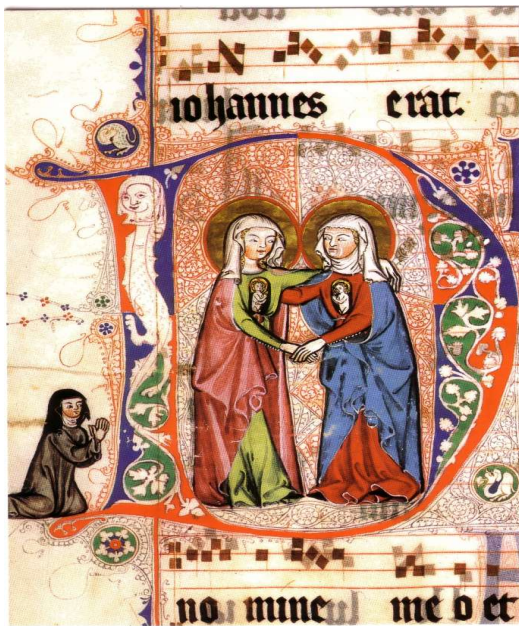 iohannes erat.
no mine me o et